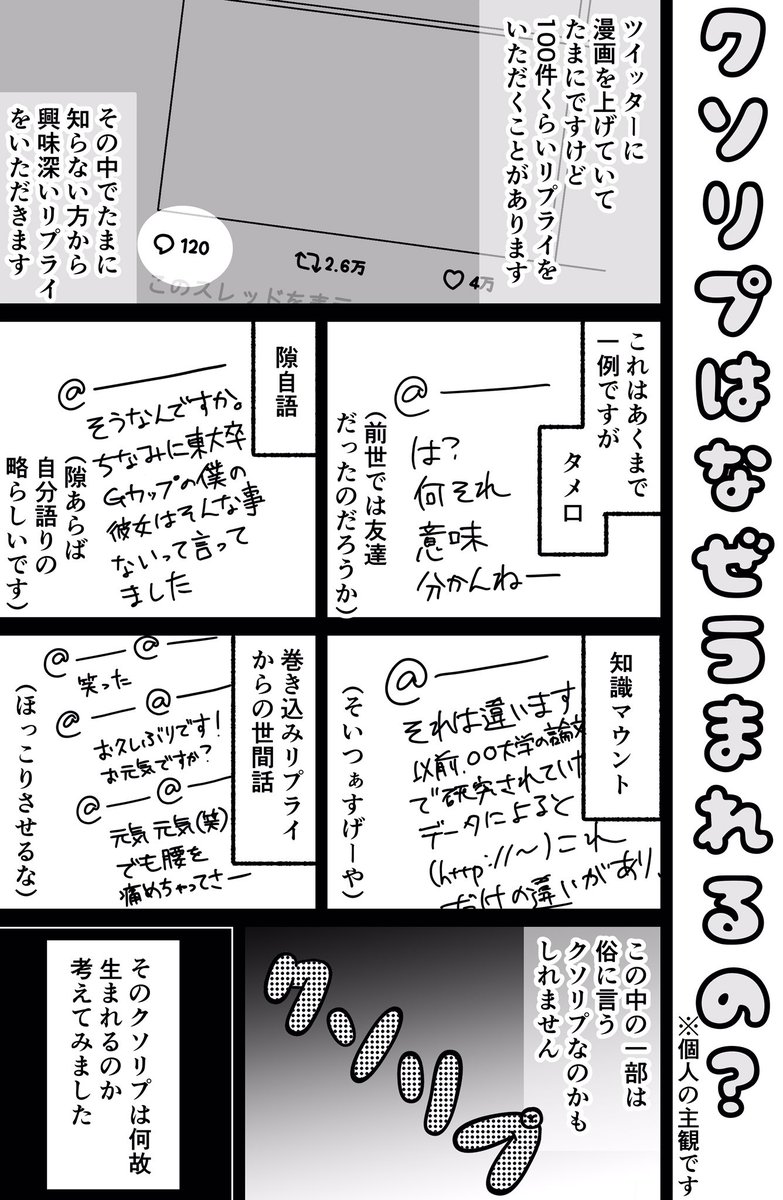 クソリプはなぜうまれるの?
※個人の主観です
ツイッターに
漫画を上げていて
たまにですけど
100件くらいリプライを
いただくことがあります
120
2.6万
4万
このスレッドを表示
その中でたまに
知らない方から
興味深いリプライ
をいただきます
これはあくまで
一例ですが
タメ口
@
は?
何それ
意味
分かんねー
(前世では友達
だったのだろうか)
隙自語
@
そうなんですか。
ちなみに東大卒
Gカップの僕の
彼女はそんな事
ないって言って
ました
(隙あらば
自分語りの
略らしいです)
知識マウント
@
それは違います
以前、〇〇大学の論文
で研究されていた
データによると
(http://~)これ
だけの違いがあり、
(そいつぁすげーや)
巻き込みリプライ
からの世間話
@ @
笑った
@ @
お久しぶりです!
お元気ですか?
@ @
元気元気(笑)
でも腰を
痛めちゃってさー
(ほっこりさせるな)
この中の一部は
俗に言う
クソリプなのかも
しれません
クソリプ
そのクソリプは何故
生まれるのか
考えてみました